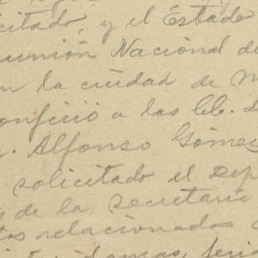 citado, y el Estado
unión Nacional d
n la ciudad de M
onfirió a las bb. D
. Alfonso Gómez
solicitado el Dep
s de la secretaria
tos relacionados